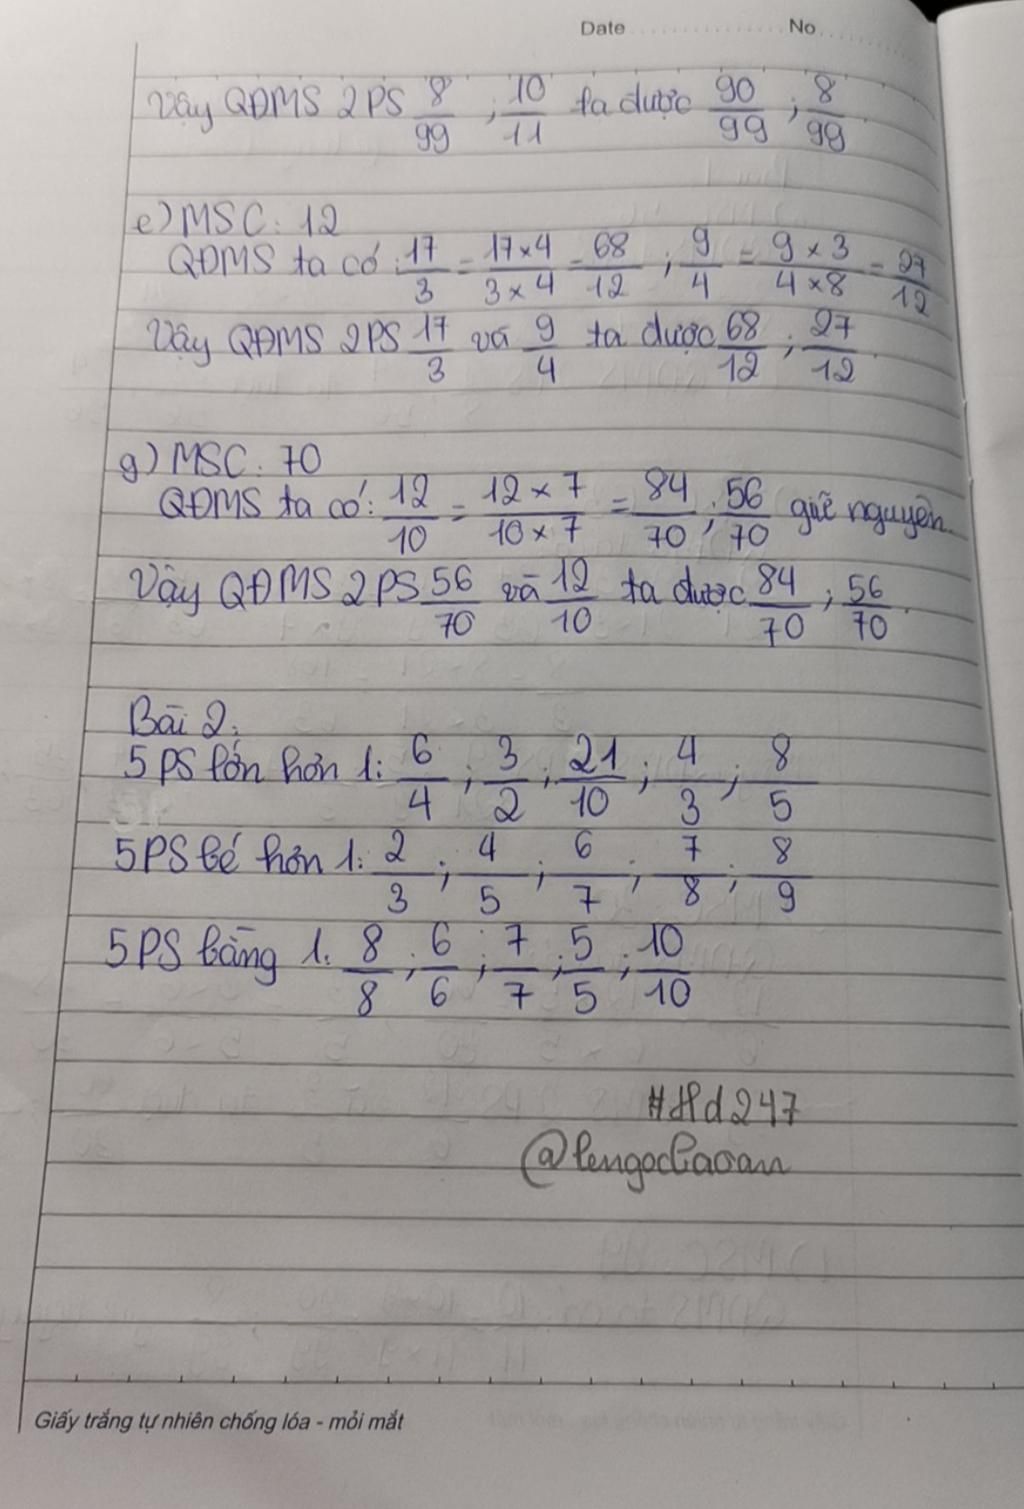 Date No
Vậy QĐMS 2PS 8/99 ; 10/11 ta được 90/99 ; 8/99.
e) MSC: 12
QĐMS ta có: 17/3 = 17×4/3×4 = 68/12 ; 9/4 = 9×3/4×8 = 27/12
Vậy QĐMS 2PS 17/3 và 9/4 ta được 68/12 ; 27/12.
g) MSC: 70
QĐMS ta có: 12/10 = 12×7/10×7 = 84/70 ; 56/70 giữ nguyên.
Vậy QĐMS 2PS 56/70 và 12/10 ta được 84/70 ; 56/70.
Bài 2:
5PS lớn hơn 1: 6/4 ; 3/2 ; 21/10 ; 4/3 ; 8/5
5PS bé hơn 1: 2/3 ; 4/5 ; 6/7 ; 7/8 ; 8/9
5PS bằng 1: 8/8 ; 6/6 ; 7/7 ; 5/5 ; 10/10
#Hd247
@lengocbaoan
Giấy trắng tự nhiên chống lóa - mỏi mắt